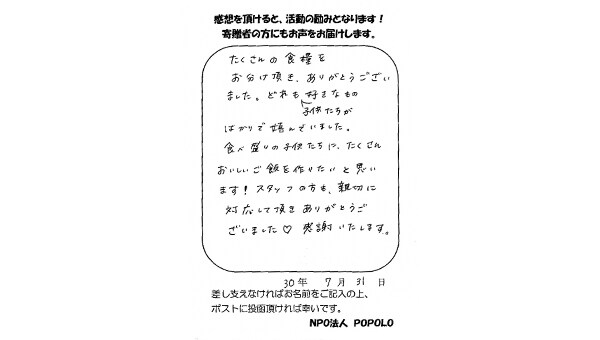 感想を頂けると、活動の励みとなります！
寄贈者の方にもお声をお届けします。
たくさんの食糧を
お分け頂き、ありがとうござい
ました。どれも好きなもの
子供たちが
ばかりで嬉んでいました。
食べ盛りの子供たちに、たくさん
おいしいご飯を作りたいと思い
ます！スタッフの方も、親切に
対応して頂きありがとうご
ざいました♡ 感謝いたします。
30年 7月 31日
差し支えなければお名前をご記入の上、
ポストに投函頂ければ幸いです。
NPO法人 POPOLO